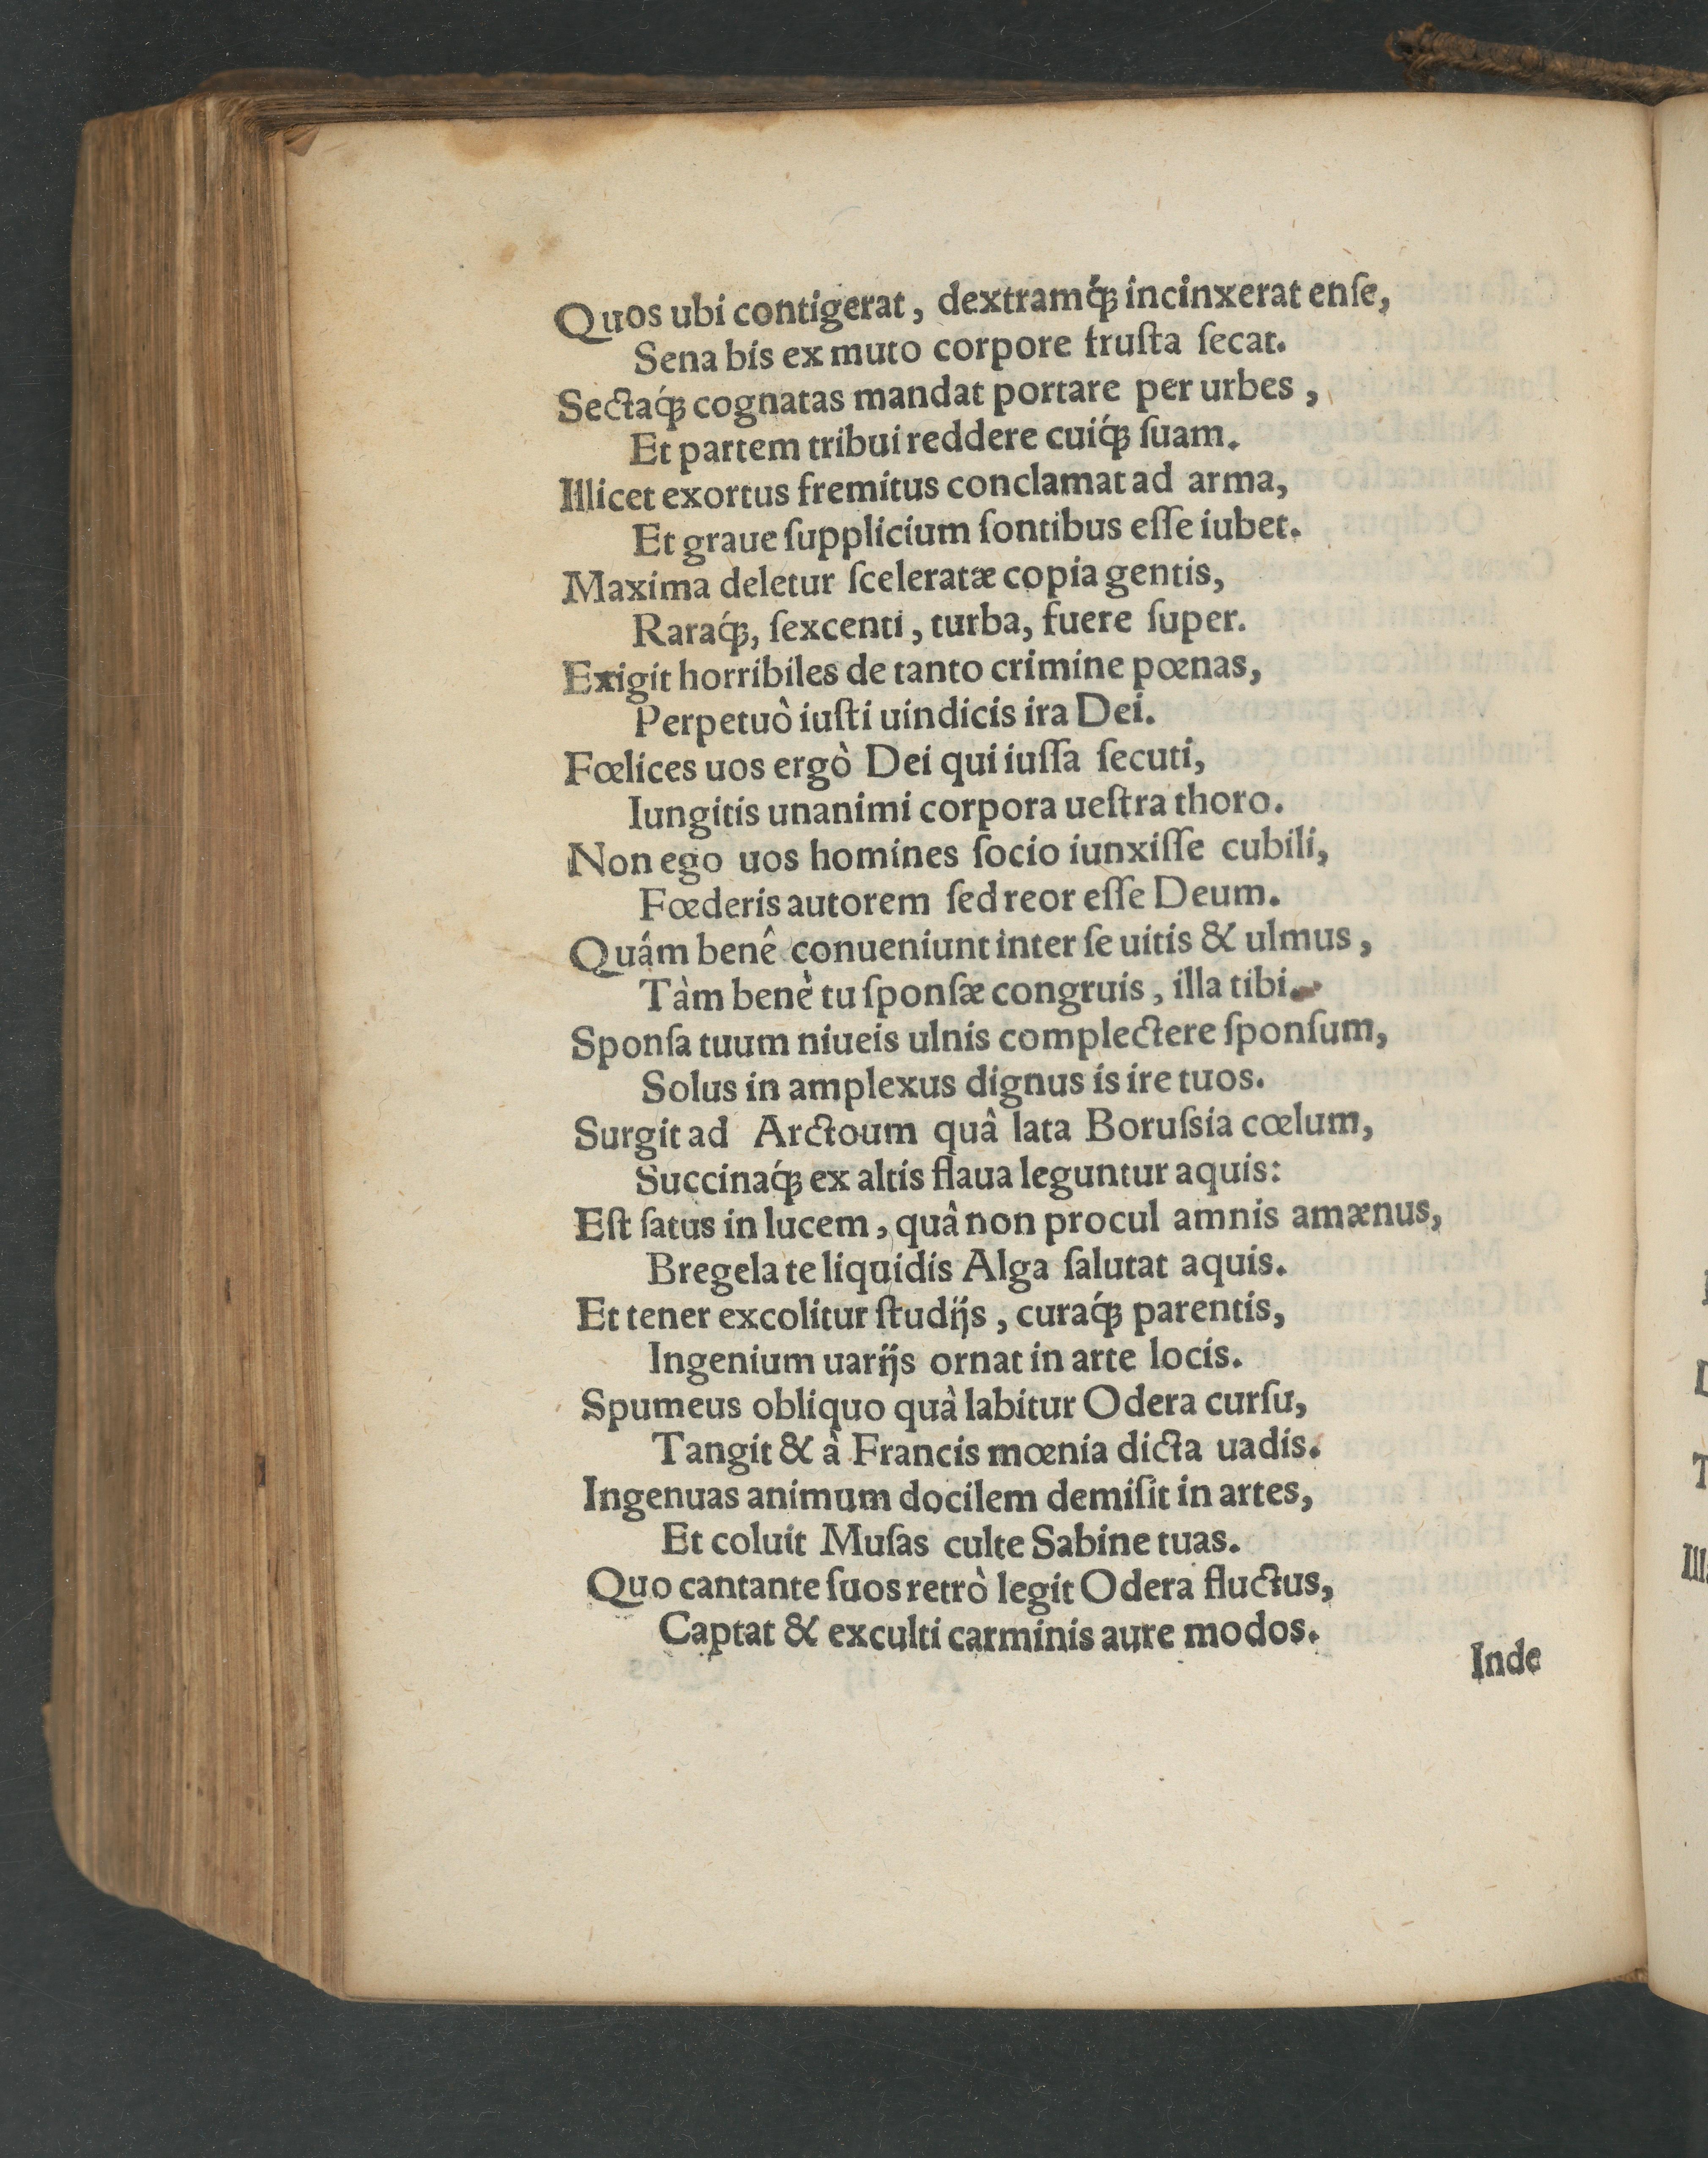 Quos ubi contigerat, dextramq́ꝫ incinxerat enſe,
Sena bis ex muto corpore fruſta ſecat.
Sectaq́ꝫ cognatas mandat portare per urbes,
Et partem tribui reddere cuiq́ꝫ ſuam.
Illicet exortus fremitus conclamat ad arma,
Et graue ſupplicium ſontibus eſſe iubet.
Maxima deletur ſceleratæ copia gentis,
Raraq́ꝫ, ſexcenti, turba, fuere ſuper.
Exigit horribiles de tanto crimine pœnas,
Perpetuò iuſti uindicis ira Dei.
Fœlices uos ergò Dei qui iuſſa ſecuti,
Iungitis unanimi corpora ueſtra thoro.
Non ego uos homines ſocio iunxiſſe cubili,
Fœderis autorem ſed reor eſſe Deum.
Quâm benê conueniunt inter ſe uitis & ulmus,
Tàm benè tu ſponſæ congruis, illa tibi.
Sponſa tuum niueis ulnis complectere ſponſum,
Solus in amplexus dignus is ire tuos.
Surgit ad Arctoum quâ lata Boruſsia cœlum,
Succinaq́ꝫ ex altis flaua leguntur aquis:
Eſt ſatus in lucem, quâ non procul amnis amænus,
Bregela te liquidis Alga ſalutat aquis.
Et tener excolitur ſtudijs, curaq́ꝫ parentis,
Ingenium uarijs ornat in arte locis.
Spumeus obliquo quà labitur Odera curſu,
Tangit & à Francis mœnia dicta uadis.
Ingenuas animum docilem demiſit in artes,
Et coluit Muſas culte Sabine tuas.
Quo cantante ſuos retrò legit Odera fluctus,
Captat & exculti carminis aure modos.
Inde